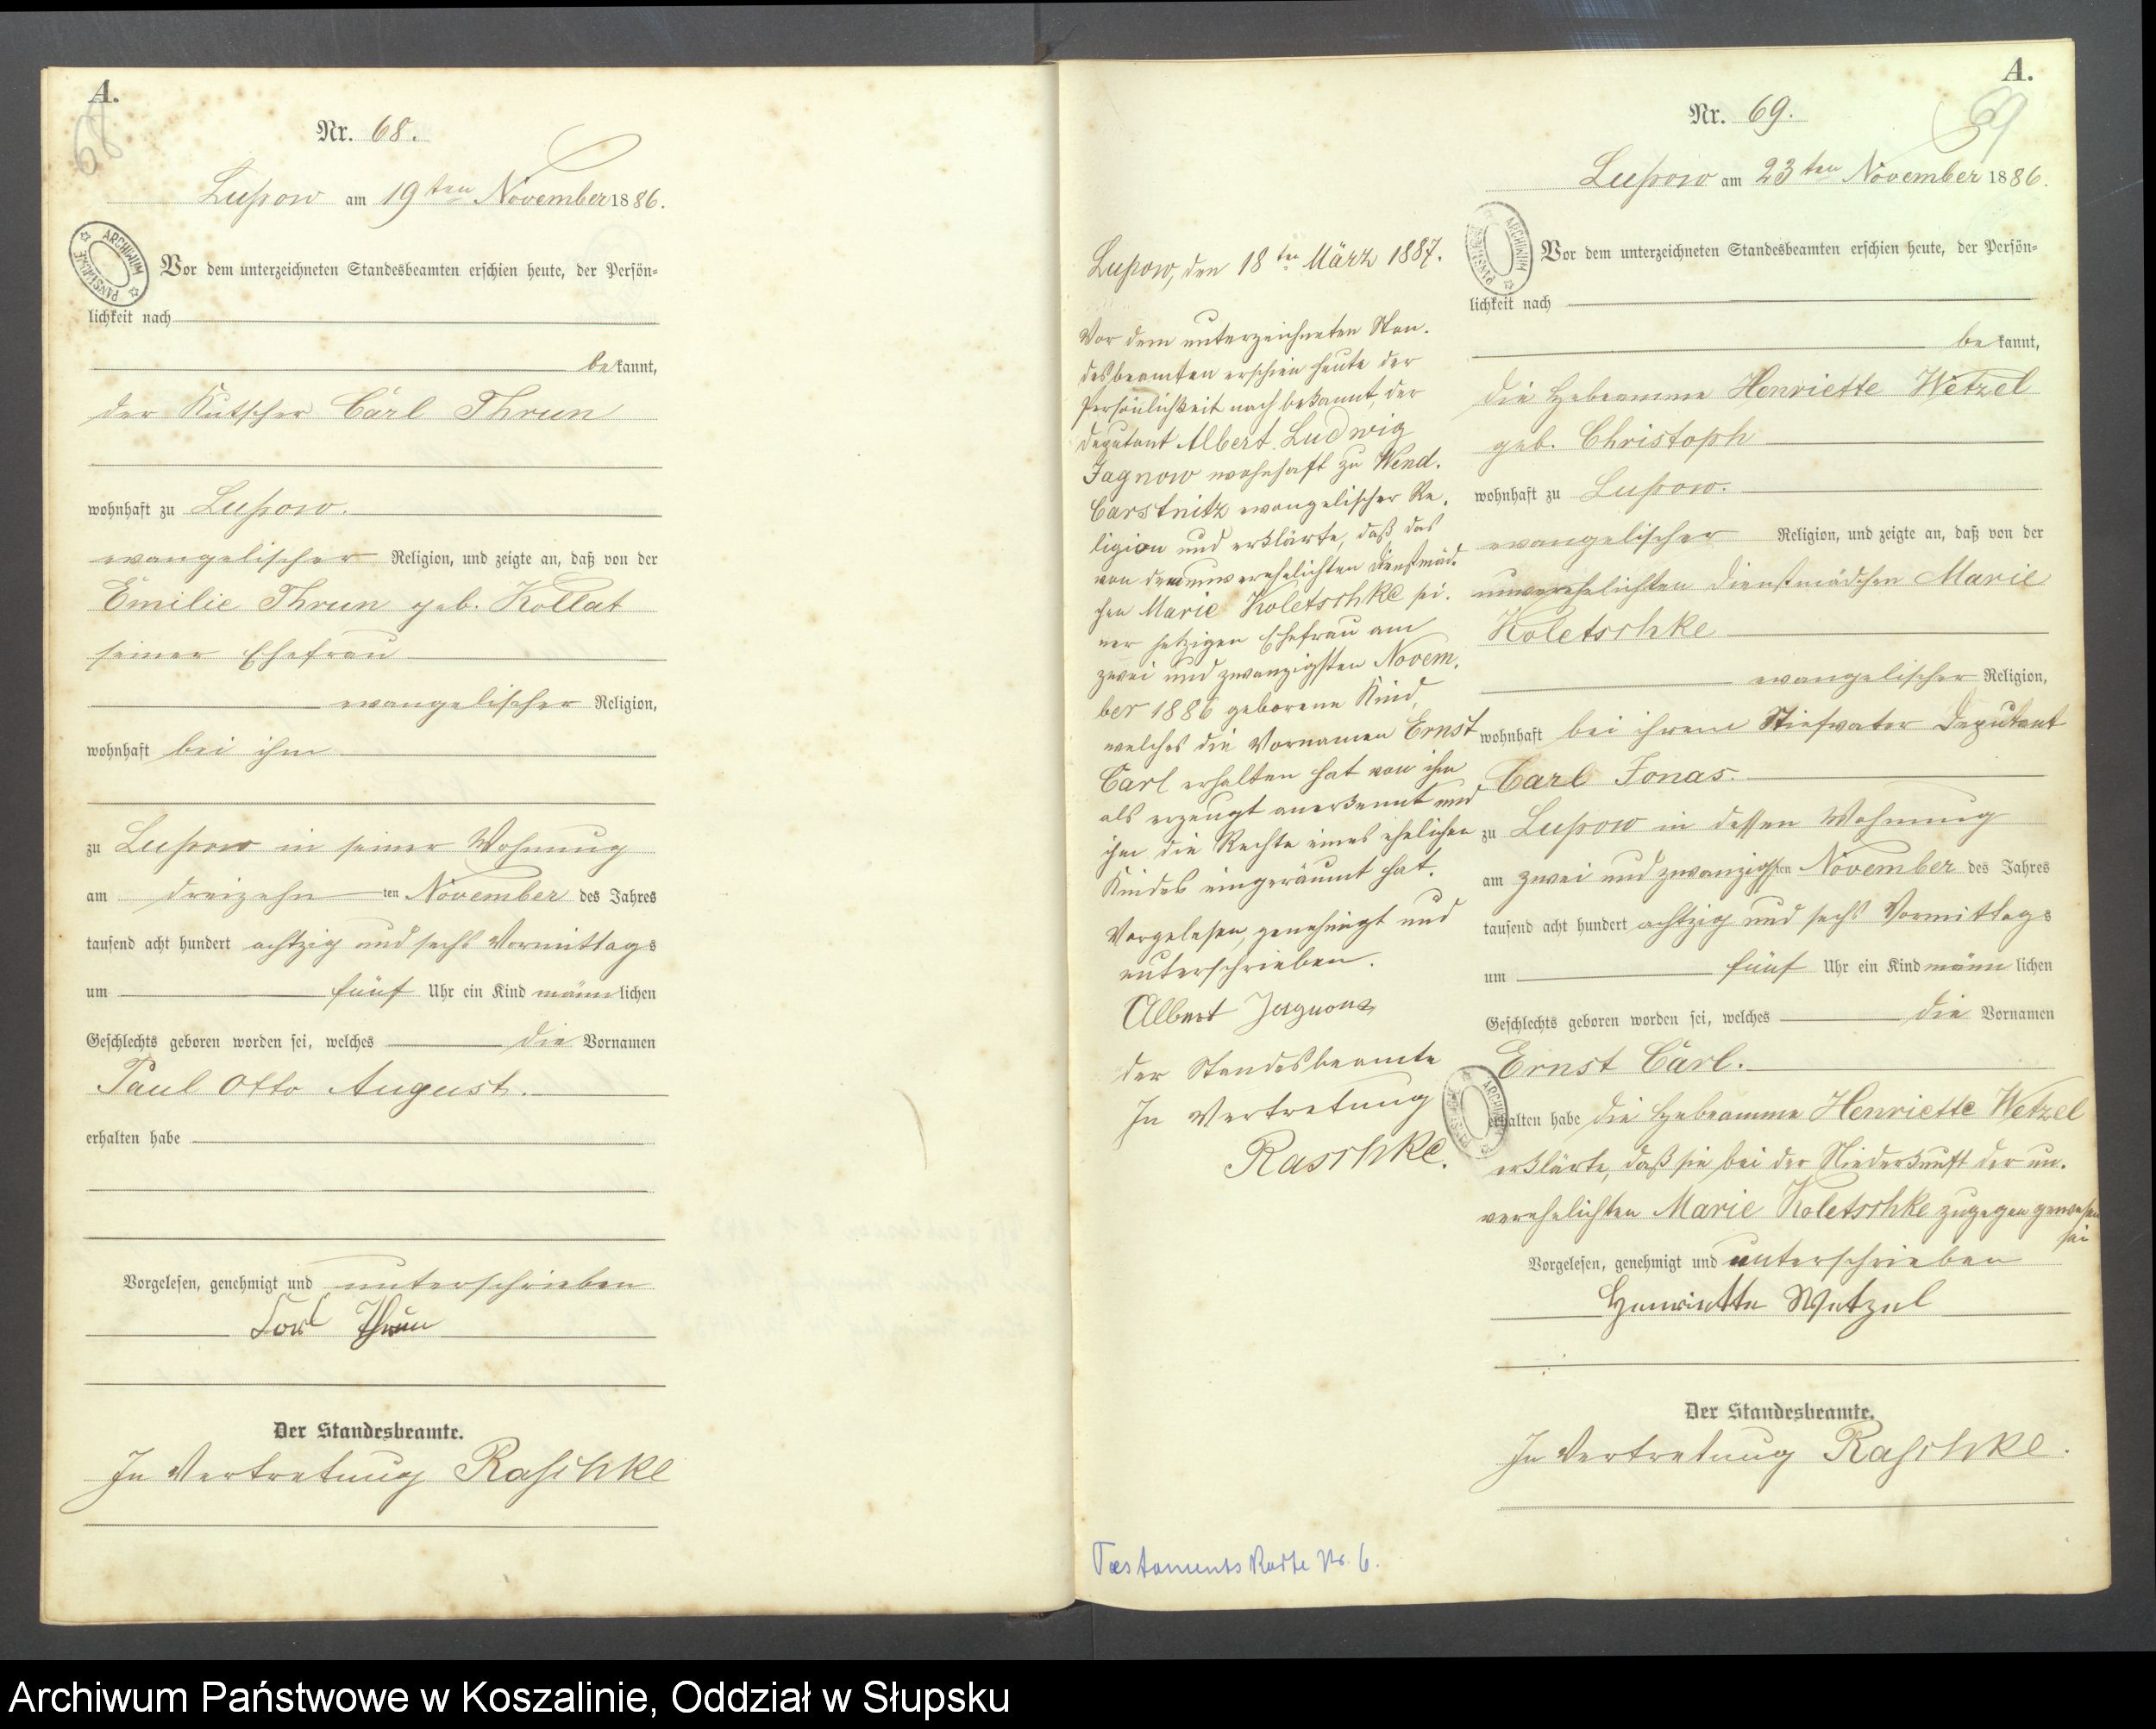 A.
68
Nr. 68.
Lupow am 19ten November 1886.
ARCHIWUM PAŃSTWOWE
Vor dem unterzeichneten Standesbeamten erschien heute, der Persön-
lichkeit nach
bekannt,
der Kutscher Carl Thrun
wohnhaft zu Lupow.
evangelischer Religion, und zeigte an, daß von der
Emilie Thrun geb. Kollat
seiner Ehefrau
evangelischer Religion,
wohnhaft bei ihm
zu Lupow in seiner Wohnung
am dreizehn ten November des Jahres
tausend acht hundert achtzig und sechs Vormittags
um fünf Uhr ein Kind männlichen
Geschlechts geboren worden sei, welches die Vornamen
Paul Otto August.
erhalten habe
Vorgelesen, genehmigt und unterschrieben
Carl Thrun
Der Standesbeamte.
In Vertretung Raschke
A.
69
Nr. 69.
Lupow am 23ten November 1886.
ARCHIWUM PAŃSTWOWE
Vor dem unterzeichneten Standesbeamten erschien heute, der Persön-
lichkeit nach
bekannt,
die Hebeamme Henriette Wetzel
geb. Christoph
wohnhaft zu Lupow.
evangelischer Religion, und zeigte an, daß von der
unverehelichten Dienstmädchen Marie
Koletschke
evangelischer Religion,
wohnhaft bei ihrem Stiefvater Deputant
Carl Jonas.
zu Lupow in dessen Wohnung
am zwei und zwanzigsten November des Jahres
tausend acht hundert achtzig und sechs Vormittags
um fünf Uhr ein Kind männlichen
Geschlechts geboren worden sei, welches die Vornamen
Ernst Carl.
erhalten habe die Hebeamme Henriette Wetzel
erklärte, daß sie bei der Niederkunft der un-
verehelichten Marie Koletschke zugegen gewesen
sei
Vorgelesen, genehmigt und unterschrieben
Henriette Wetzel
Der Standesbeamte.
In Vertretung Raschke.
Lupow, den 18ten März 1887.
Vor dem unterzeichneten Stan-
desbeamten erschien heute der
Persönlichkeit nach bekannt, der
Deputant Albert Ludwig
Jagnow wohnhaft zu Wend.
Carstnitz evangelischer Re-
ligion und erklärte, daß das
von der unverehelichten Dienstmäd-
chen Marie Koletschke sei-
ner jetzigen Ehefrau am
zwei und zwanzigsten Novem-
ber 1886 geborene Kind,
welches die Vornamen Ernst
Carl erhalten hat von ihm
als erzeugt anerkannt und
ihm die Rechte eines ehelichen
Kindes eingeräumt hat.
Vorgelesen, genehmigt und
unterschrieben.
Albert Jagnow
Der Standesbeamte
In Vertretung
Raschke.
ARCHIWUM PAŃSTWOWE
Testaments Karte Nr. 6.
Archiwum Państwowe w Koszalinie, Oddział w Słupsku